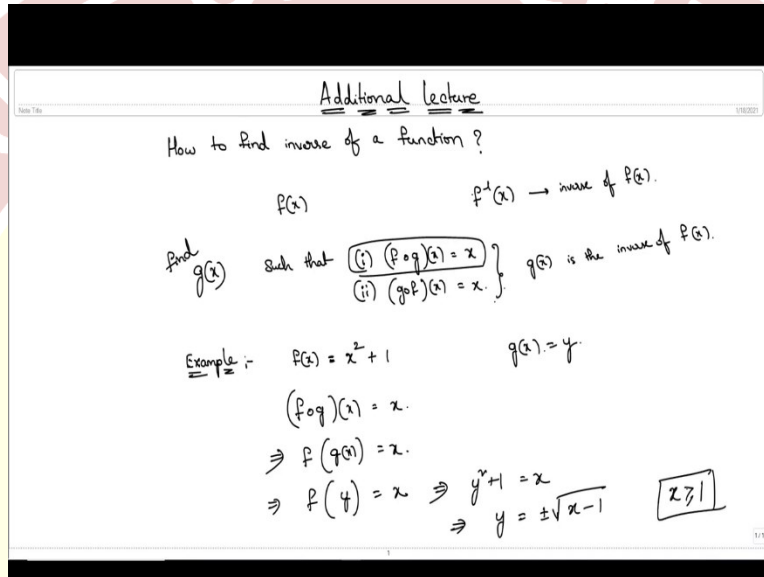 Additional lecture
Note Title
1/18/2021
How to find inverse of a function ?
f(x)    f⁻¹(x) → inverse of f(x).
find g(x) such that (i) (fog)(x) = x
(ii) (gof)(x) = x. } g(x) is the inverse of f(x).
Example :- f(x) = x² + 1    g(x) = y.
(fog)(x) = x.
⇒ f(g(x)) = x.
⇒ f(y) = x ⇒ y² + 1 = x
⇒ y = ±√(x-1)    x ≥ 1
1/1
1